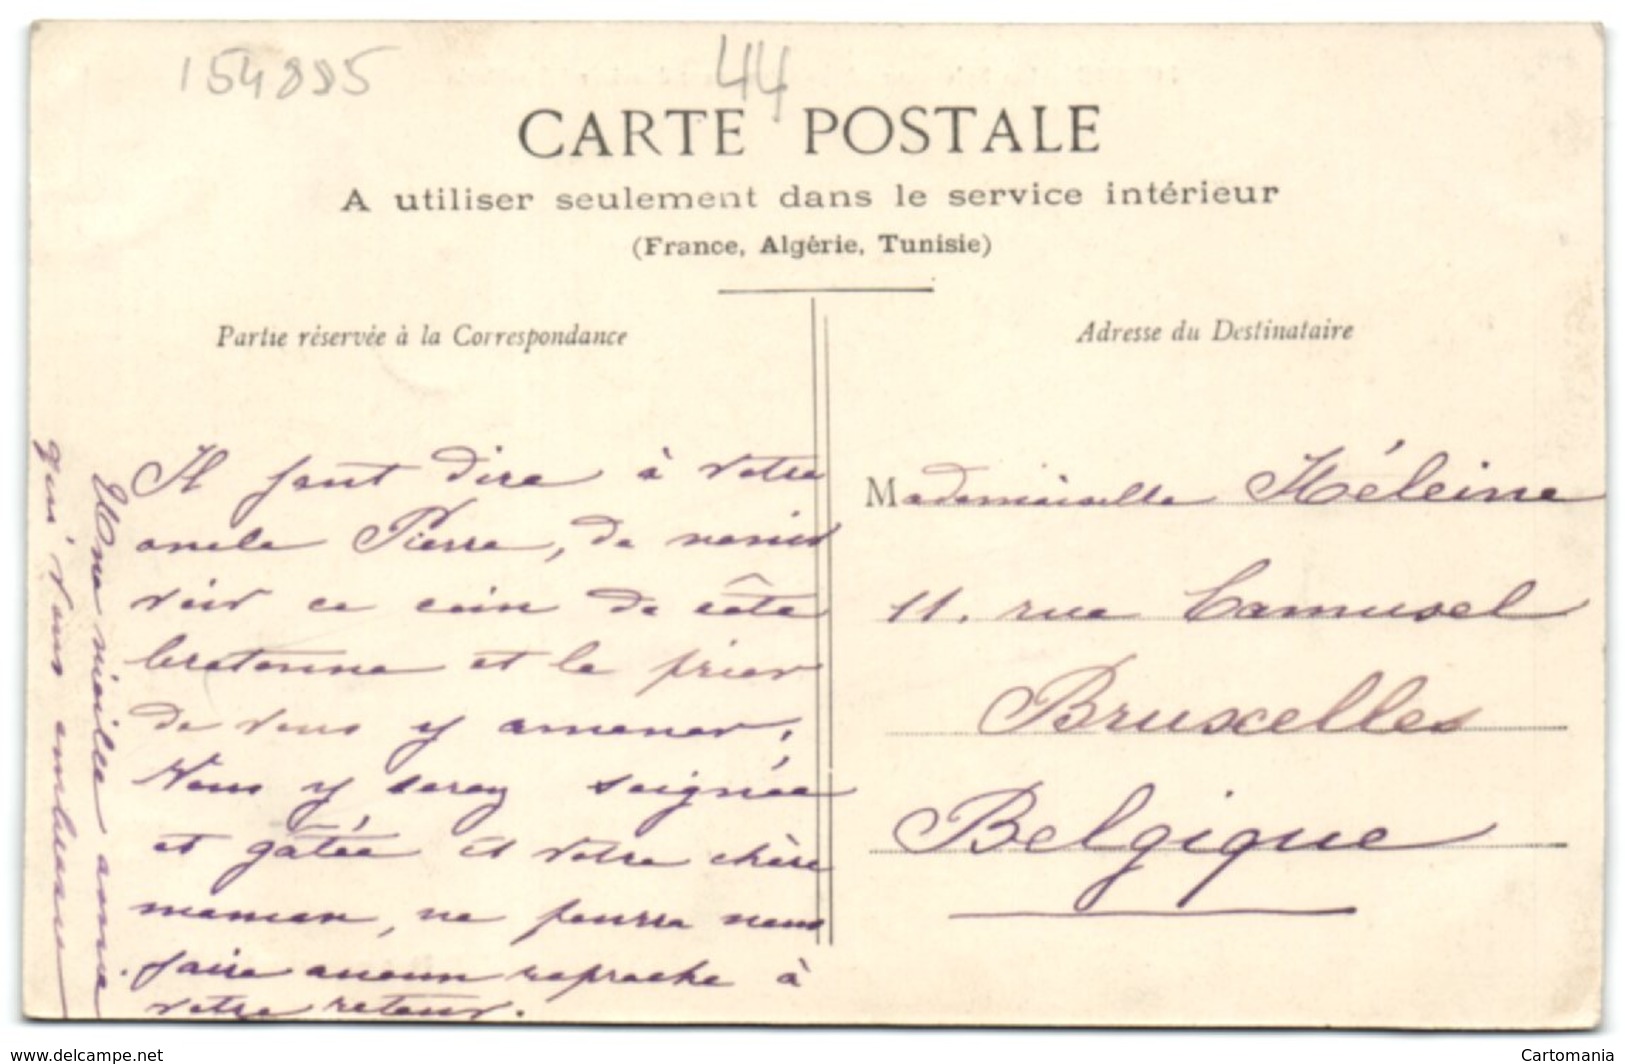 154885
44
CARTE POSTALE
A utiliser seulement dans le service intérieur
(France, Algérie, Tunisie)
Partie réservée à la Correspondance
Il faut dire à votre
oncle Pierre, de venir
voir ce coin de côte
bretonne et le prier
de vous y amener.
Vous y serez soignée
et gâtée et votre chère
maman, ne pourra nous
faire aucun reproche à
votre retour.
Une vieille amie
qui vous embrasse
Adresse du Destinataire
Mademoiselle Héleine
11. rue Camusel
Bruxelles
Belgique
www.delcampe.net
Cartomania